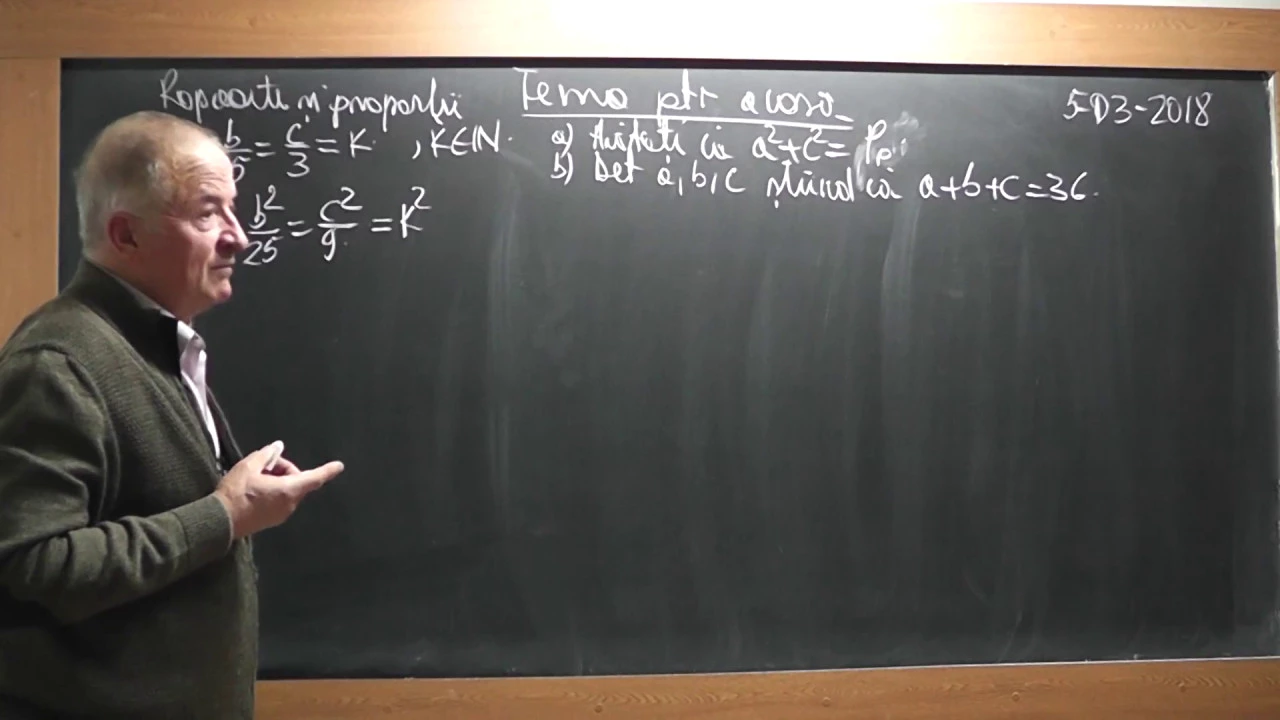 Rapoarte și proporții
b/5 = c/3 = K , K∈IN.
b²/25 = c²/9 = K²
Tema ptr acasă
a) Arătați că a²+c²= Pp
b) Det a,b,c știind că a+b+c=36.
5-D3-2018